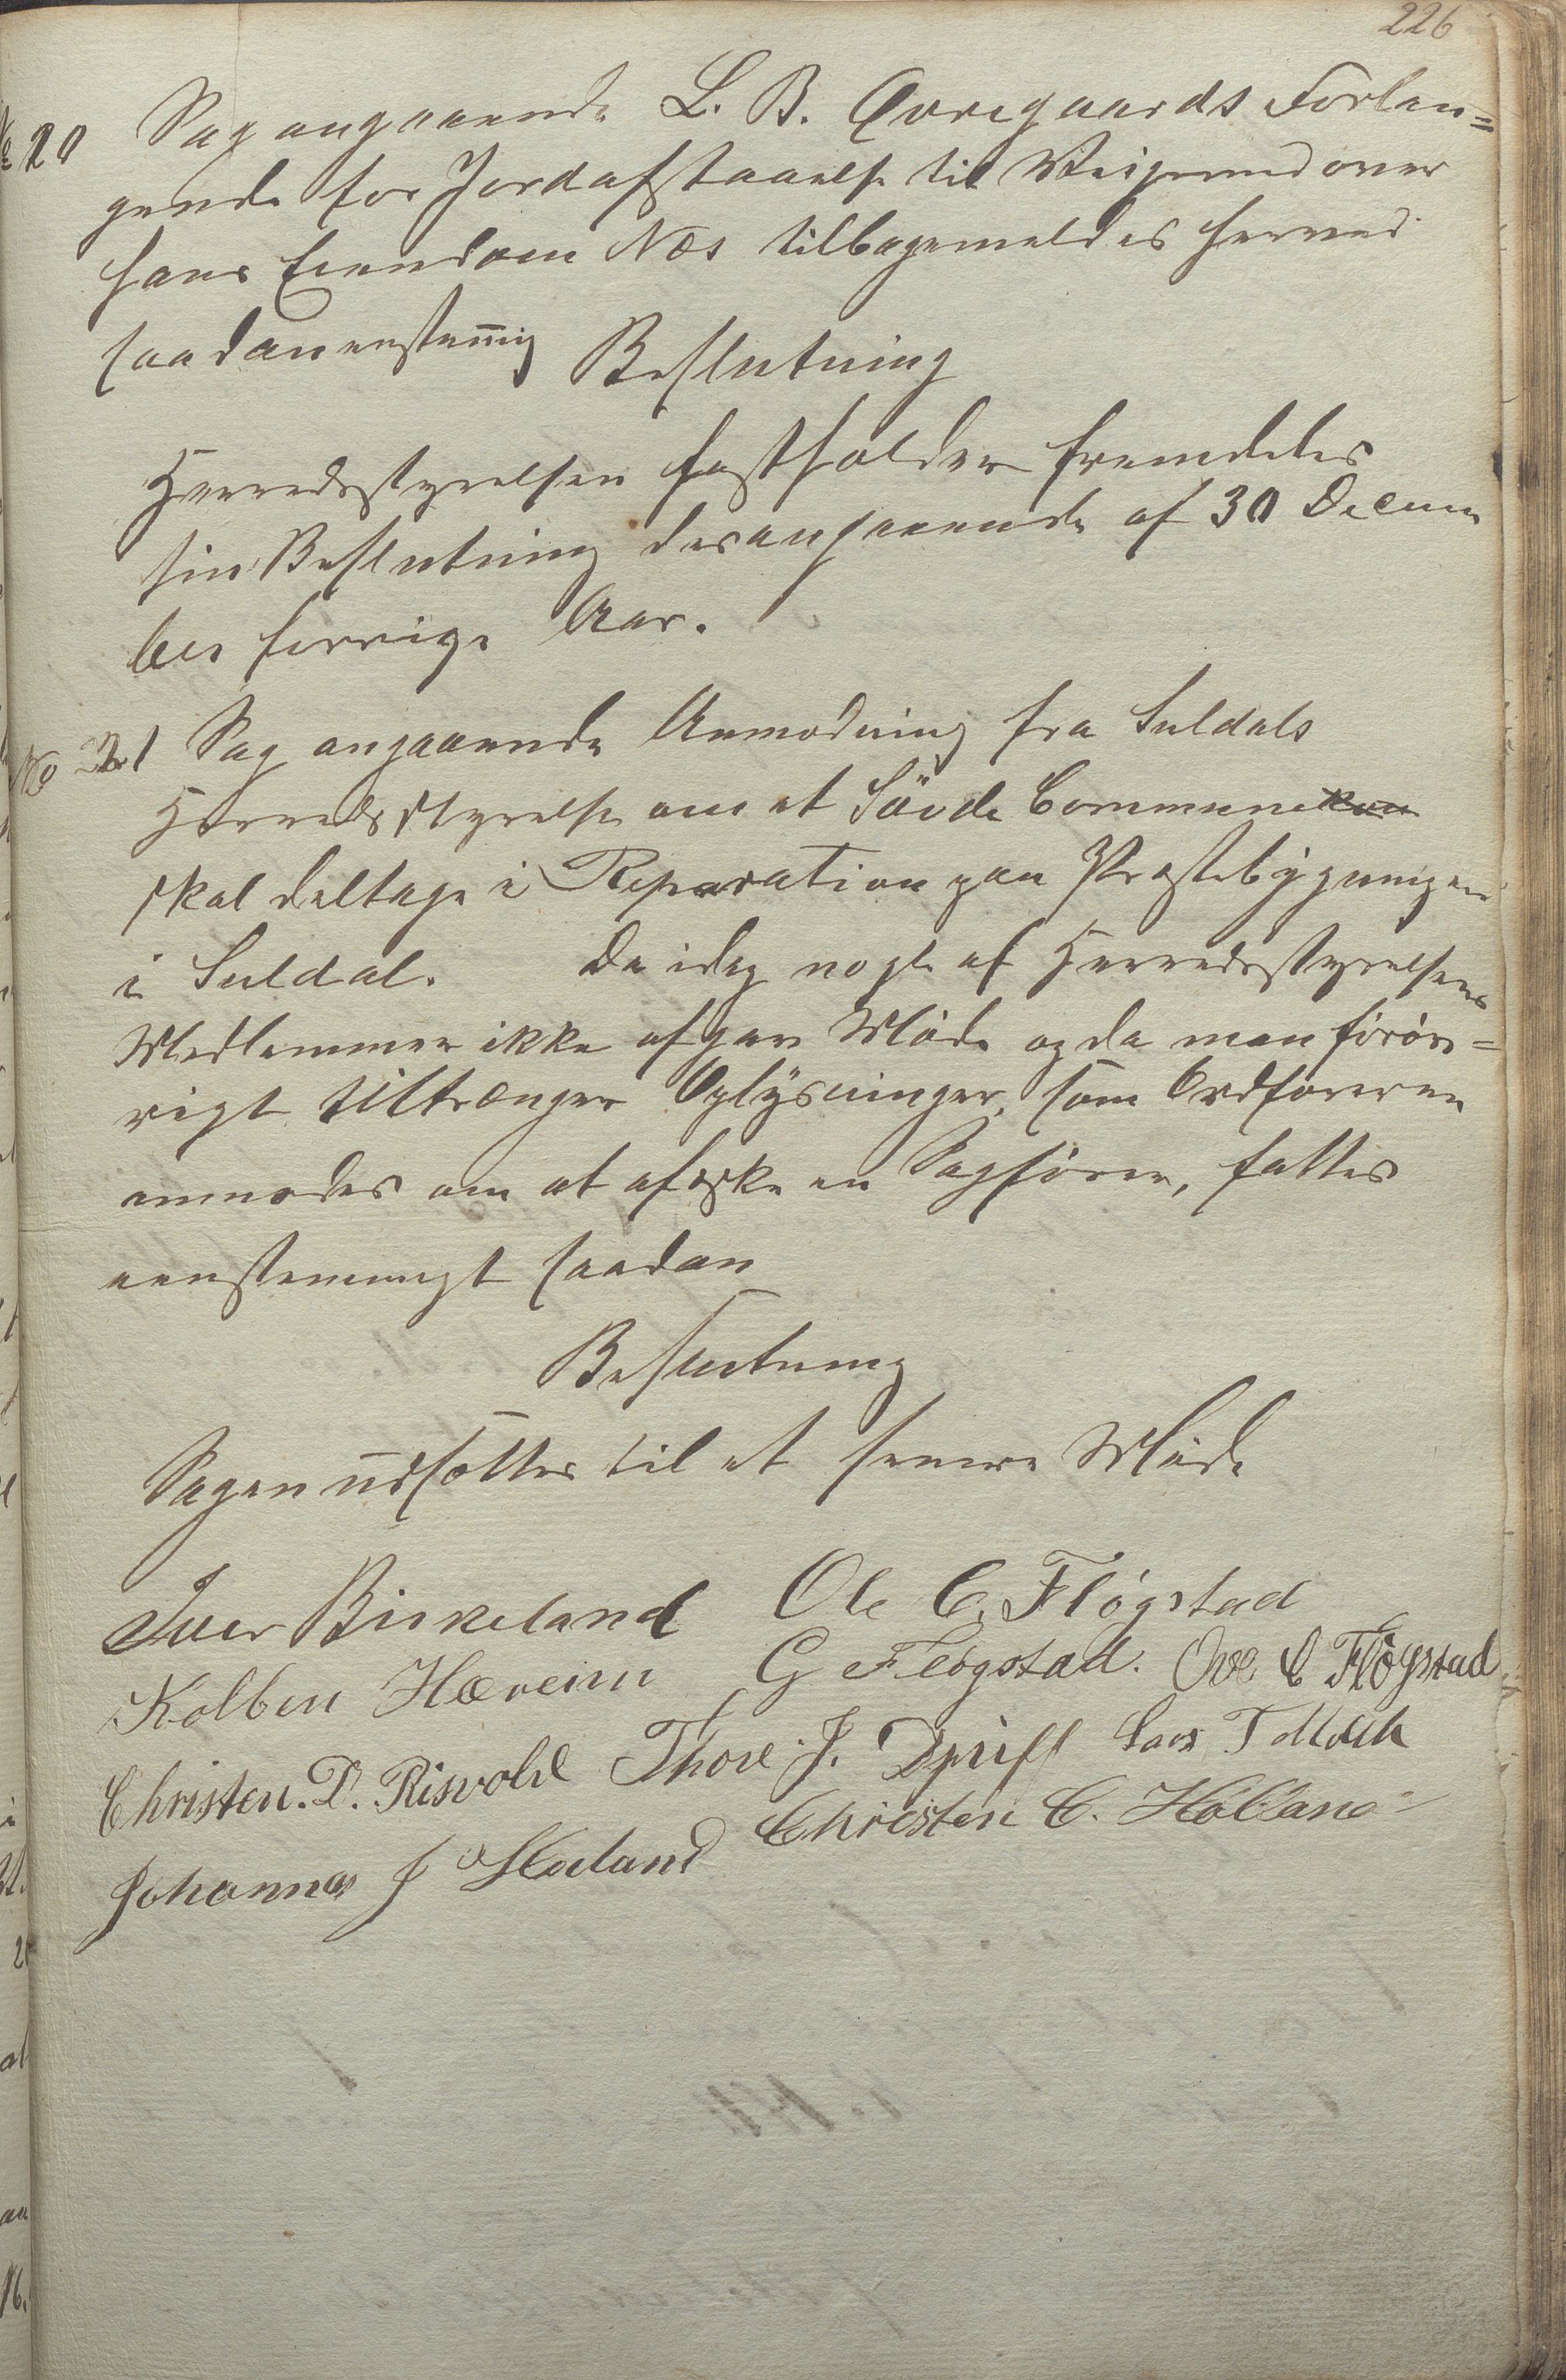 226
No 20 Sag angaaende L. B. Øvregaards Forlan=
gende for Jordafstaaelse til Veigrund over
hans Eiendom Næs tilbagemeldes herved
saadan enstemig Beslutning
Herredsstyrelsen fastholder fremdeles
sin Beslutning desangaaende af 30 Decem
ber forrige Aar.
No 21 Sag angaaende Anmodning fra Suldals
Herredsstyrelse om at Søvde Commune
skal deltage i Reparation paa Præstebygningen
i Suldal. Da idag nogle af Herredsstyrelsens
Medlemmer ikke afgav Møde og da man forøv=
rigt tiltrænger Oplysninger, som Ordføreren
anmodes om at afæske en Sagfører, fattes
eenstemmigt saadan
Beslutning
Sagen udsættes til et senere Møde
Iver Birkeland Ole C. Fløgstad
Kolben Hæreim G Fløgstad. Ove C Fløgstad
Christen. D. Risvold Thore J. Lars T
Johannes J Christen C. Hølland